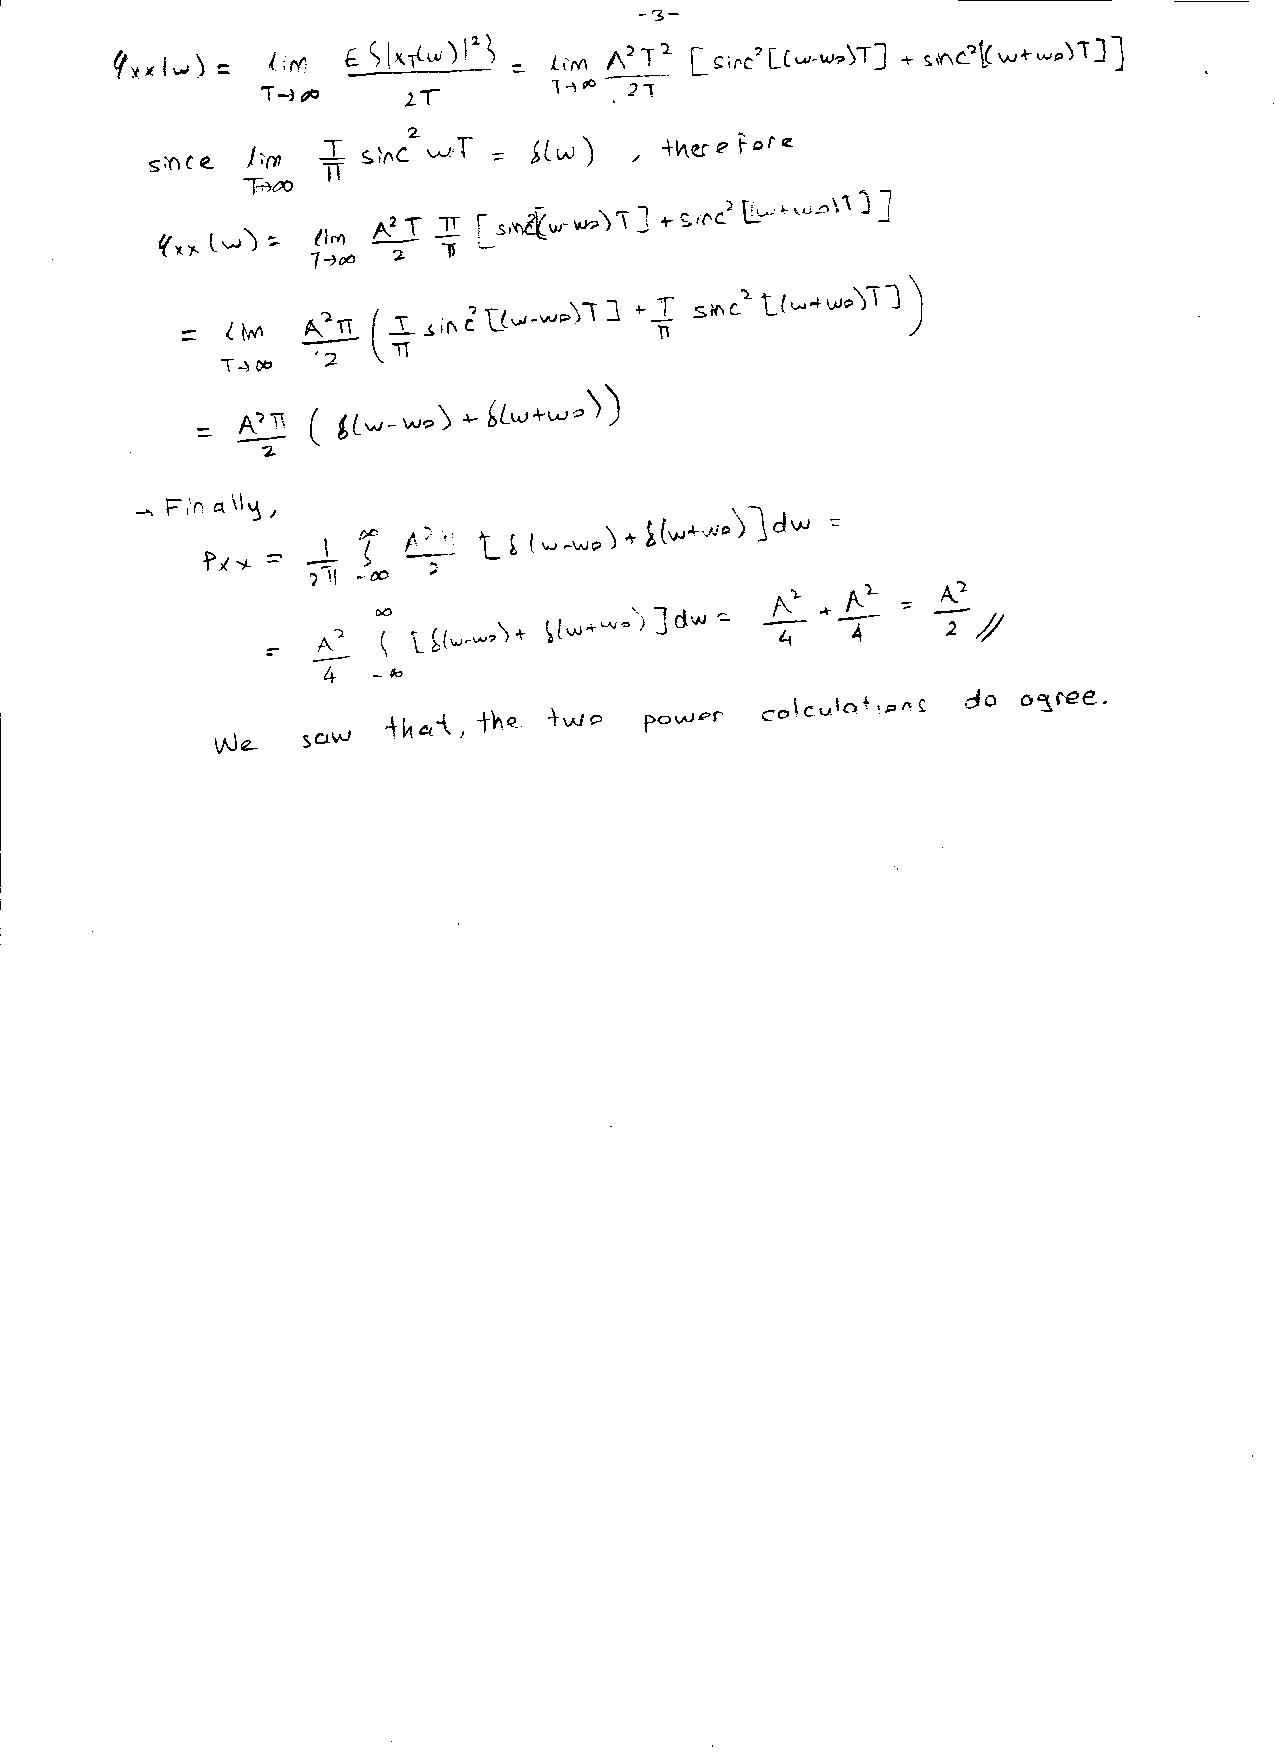 -3-
φxx(ω) = lim T→∞ E{|X_T(ω)|²} / 2T = lim T→∞ A²T² / 2T [sinc²[(ω-ω₀)T] + sinc²[(ω+ω₀)T]]
since lim T→∞ T/π sinc² ωT = δ(ω) , therefore
φxx(ω) = lim T→∞ A²T/2 π/π [sinc²[(ω-ω₀)T] + sinc²[(ω+ω₀)T]]
= lim T→∞ A²π/2 (T/π sinc²[(ω-ω₀)T] + T/π sinc²[(ω+ω₀)T])
= A²π/2 (δ(ω-ω₀) + δ(ω+ω₀))
→ Finally,
Pxx = 1/2π ∫_-∞^∞ A²π/2 [δ(ω-ω₀) + δ(ω+ω₀)]dω =
= A²/4 ∫_-∞^∞ [δ(ω-ω₀) + δ(ω+ω₀)]dω = A²/4 + A²/4 = A²/2 //
We saw that, the two power calculations do agree.